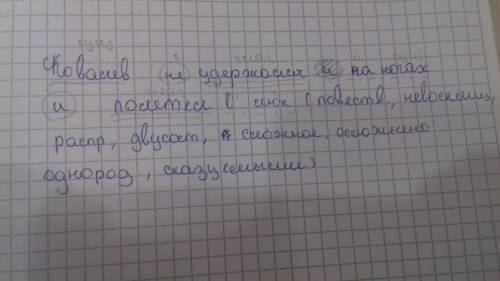 сущ
Ковалев не удержался на ногах
и полетел (повеств, невосклиц,
распр, двусост, сложное, осложнено
однород., сказуемыми)